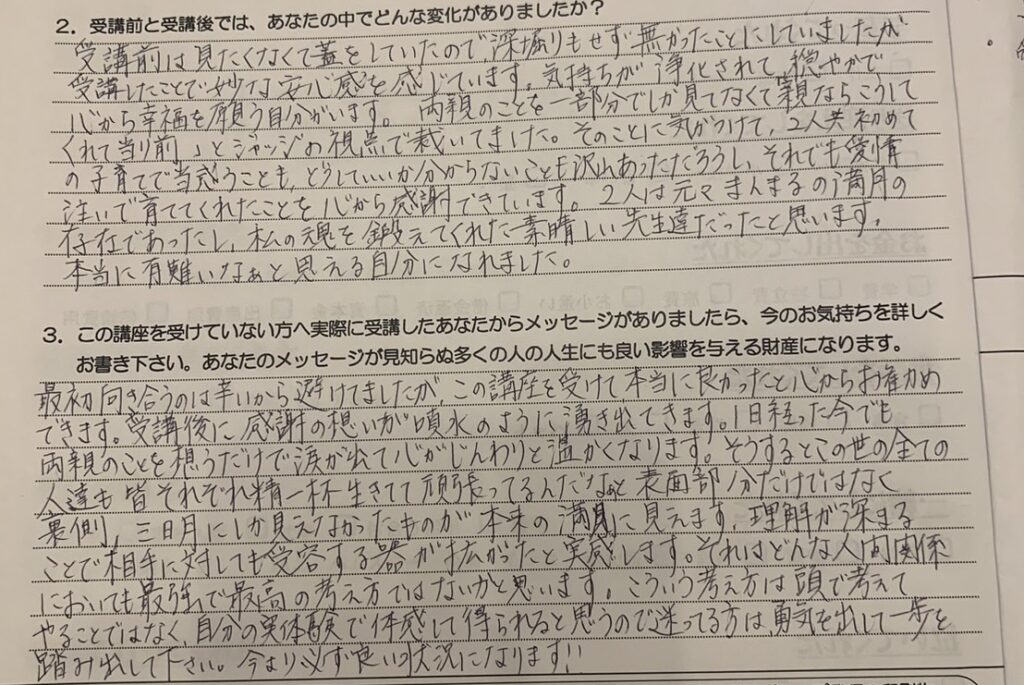 2. 受講前と受講後では、あなたの中でどんな変化がありましたか？
受講前は見たくなくて蓋をしていたので、深堀りもせず無かったことにしていましたが
受講したことで妙な安心感を感じています。気持ちが浄化されて、穏やかで
心から幸福を願う自分がいます。両親のことを一部分でしか見てなくて親ならこうして
くれて当り前」とジャッジの視点で裁いてました。そのことに気がつけて、2人共初めて
の子育てで当惑うことも、どうしていいか分からないことも沢山あっただろうし、それでも愛情
注いで育ててくれたことを心から感謝できています。2人は元々まん まるの満月の
存在であったし、私の魂を鍛えてくれた素晴しい先生達だったと思います。
本当に有難いなぁと思える自分になれました。
3. この講座を受けていない方へ実際に受講したあなたからメッセージがありましたら、今のお気持ちを詳しく
お書き下さい。あなたのメッセージが見知らぬ多くの人の人生にも良い影響を与える財産になります。
最初向き合うのは辛いから避けてましたが、この講座を受けて本当に良かったと心からお薦め
できます。受講後に感謝の想いが噴水のように湧き出てきます。1日経った今でも
両親のことを想うだけで涙が出て心がじんわりと温かくなります。そうするとこの世の全ての
人達も皆それぞれ精一杯生きてて頑張ってるんだなぁと表面部分だけではなく
裏側、三日月にしか見えなかったものが本来の満月に見えます。理解が深まる
ことで相手に対しても受容する器が拡がったと実感します。それはどんな人間関係
においても最強で最高の考え方ではないかと思います。こういう考え方は頭で考えて
やることではなく、自分の実体験で体感して得られると思うので迷ってる方は、勇気を出して一歩を
踏み出して下さい。今より必ず良い状況になります!!